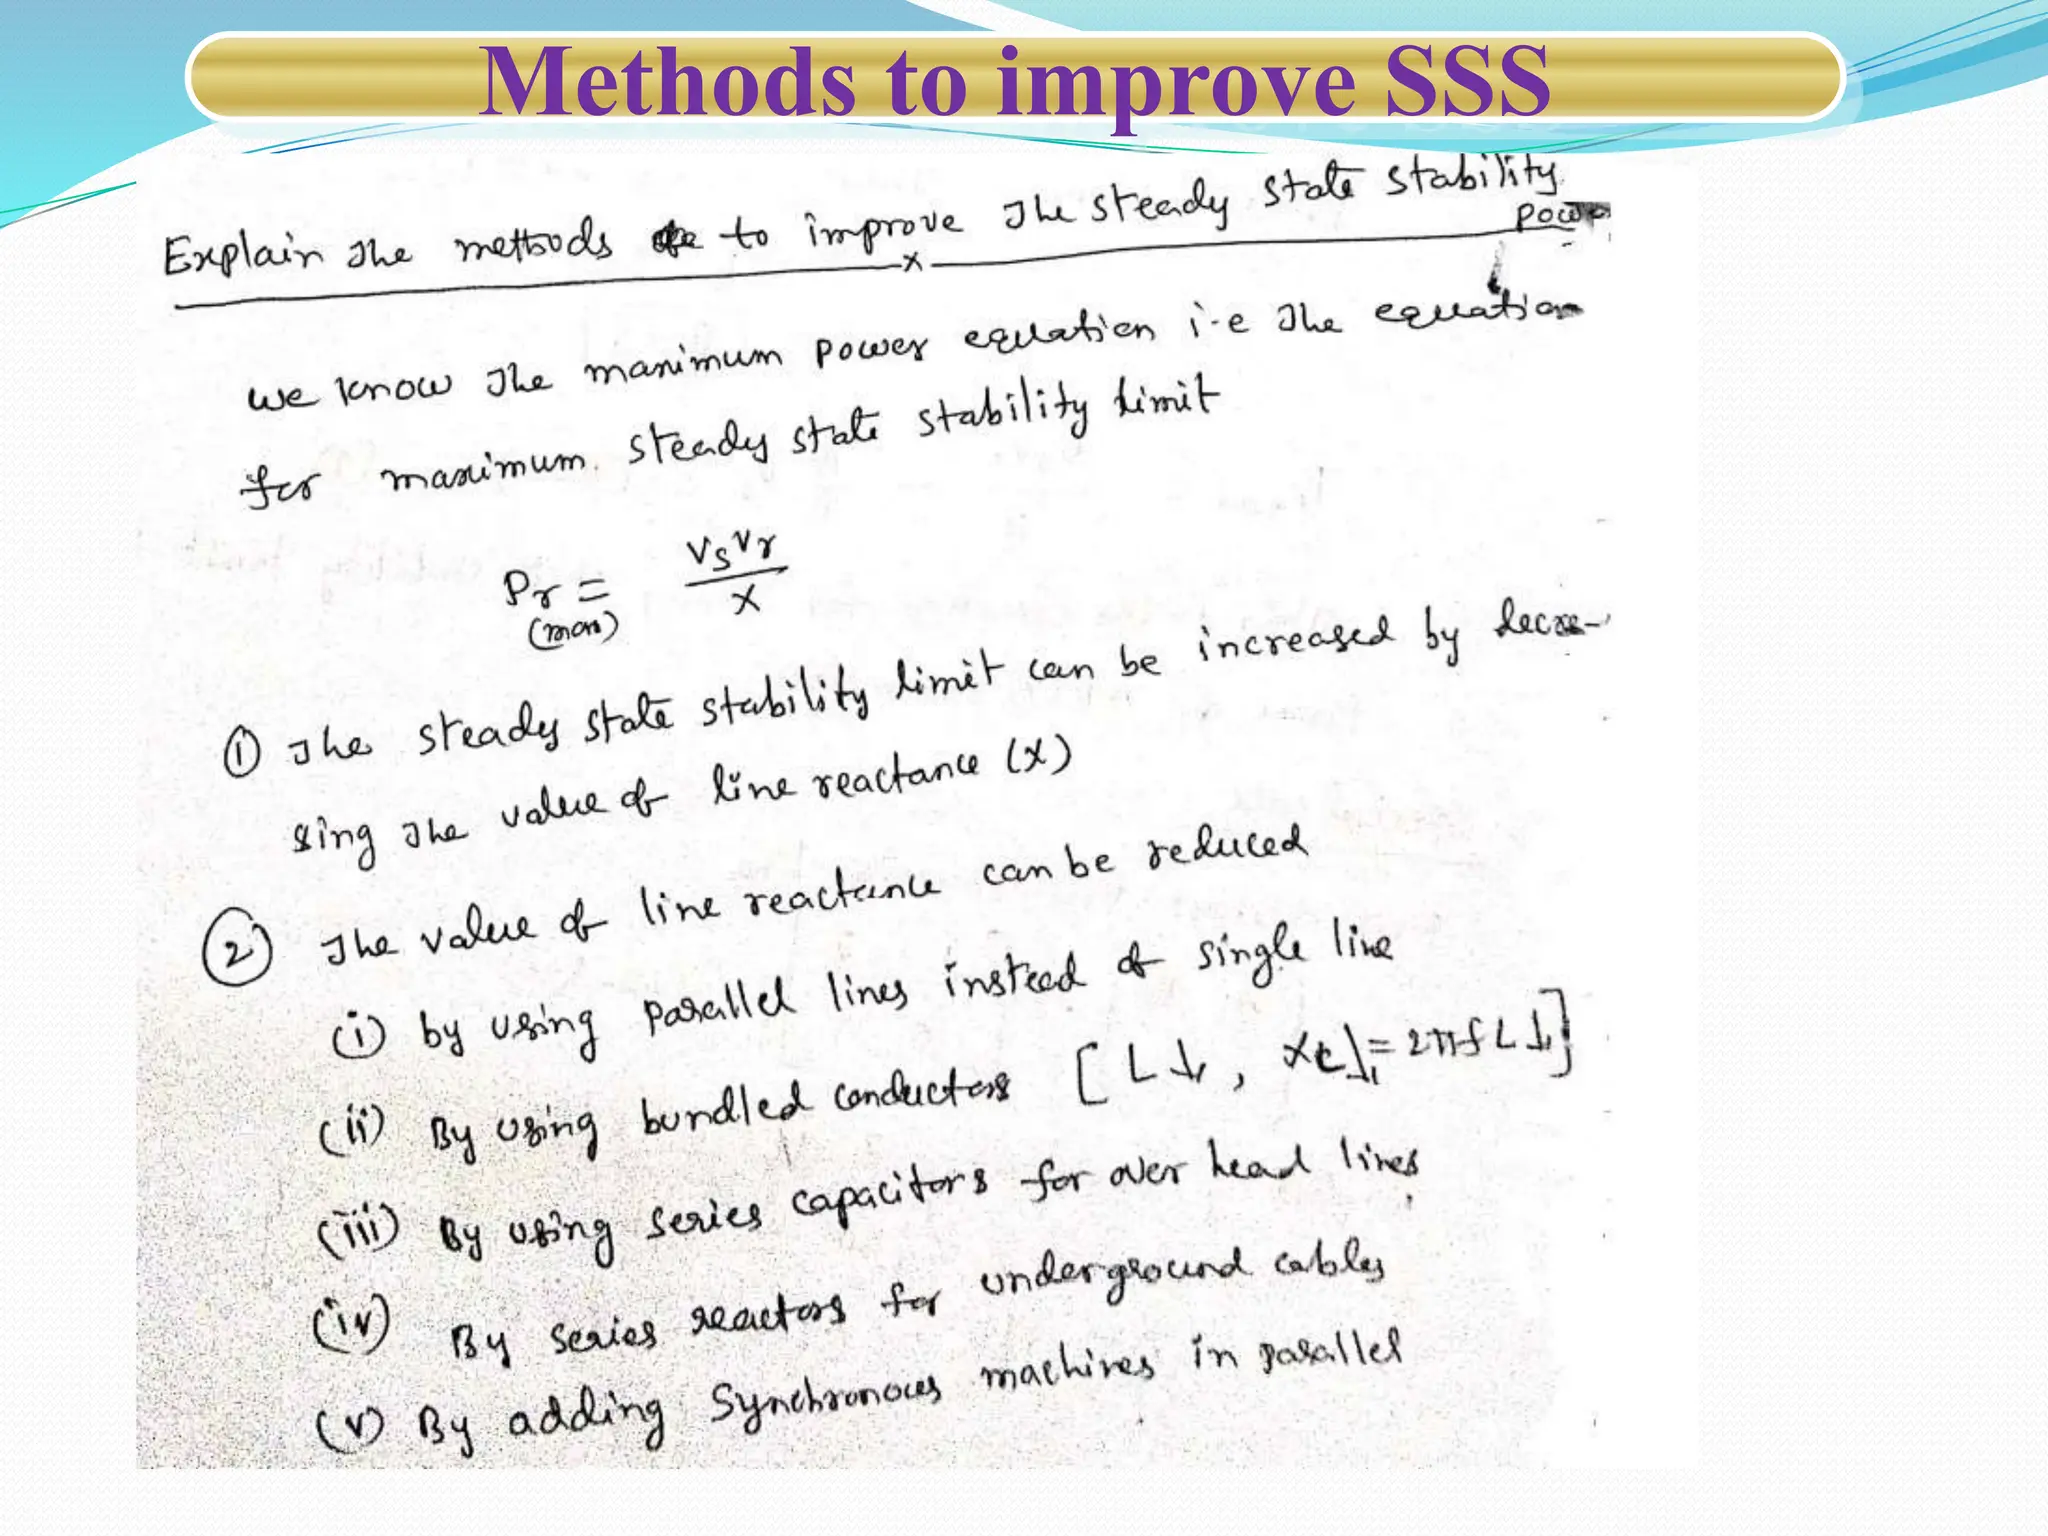 Methods to improve SSS
Explain The methods to improve The steady state stability
power
we know The maximum power equation i-e The equation
for maximum steady state stability limit
Pr(max) = VsVr / X
① The steady state stability limit can be increased by decrea-
sing The value of line reactance (X)
② The value of line reactance can be reduced
(i) by using parallel lines instead of single line
(ii) By using bundled conductors [L↓, XL↓ = 2πfL↓]
(iii) By using series capacitors for over head lines
(iv) By series reactors for underground cables
(v) By adding Synchronous machines in parallel